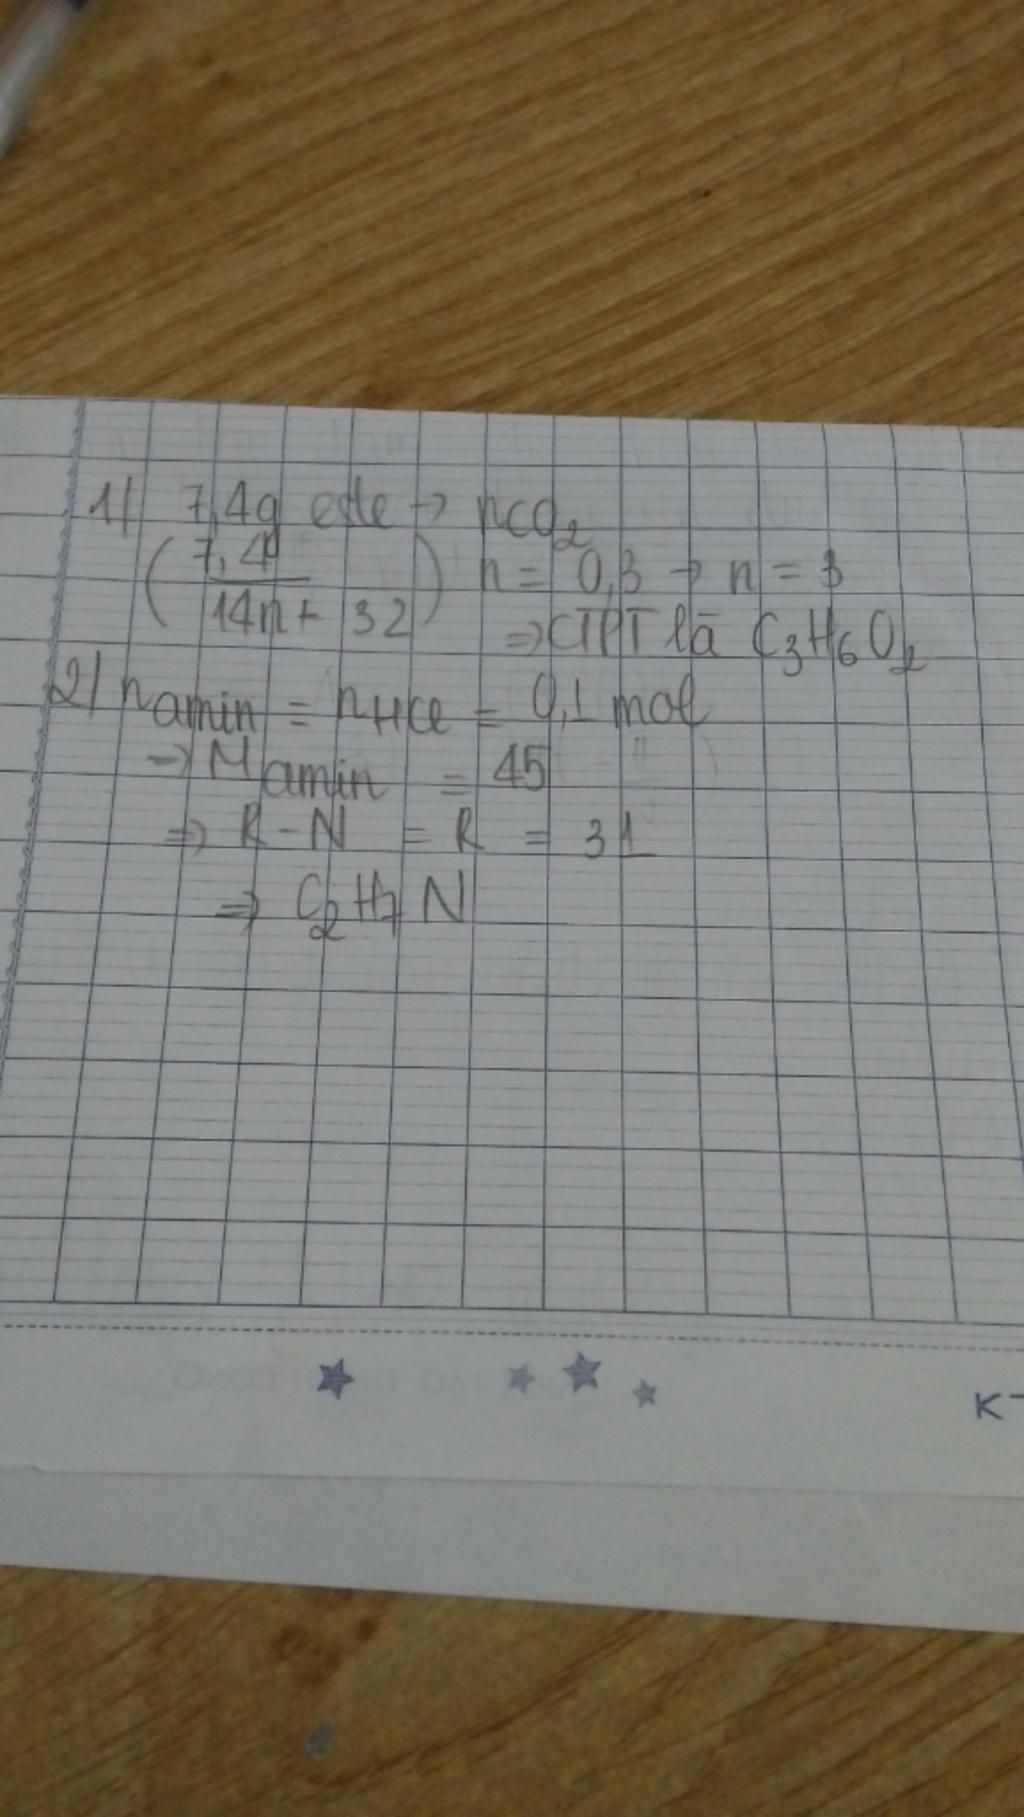 1) 7,4g este → nCO2
(7,4 / 14n + 32) n = 0,3 → n = 3
⇒ CTPT là C3H6O2
2) namin = nHCl = 0,1 mol
→ Mamin = 45
⇒ R - N = R = 31
⇒ C2H7N
K